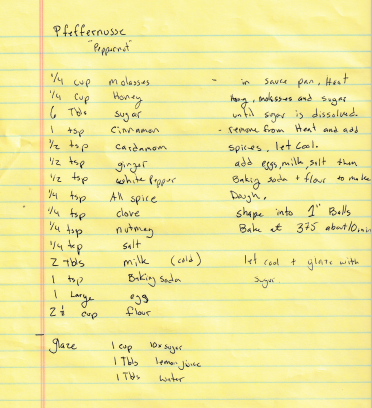 Pfeffernusse
"Peppernut"
1/4 cup molasses - in sauce pan, Heat
1/4 cup Honey Honey, molasses and sugar
6 Tbls sugar until sugar is dissolved.
1 tsp Cinnamon - remove from Heat and add
1/2 tsp cardamom spices, let Cool.
1/2 tsp ginger add eggs, milk, salt then
1/2 tsp white Pepper Baking soda + flour to make
1/4 tsp All spice Dough.
1/4 tsp clove shape into 1" Balls
1/4 tsp nutmeg Bake at 375 about 10 min
1/4 tsp salt
2 Tbls milk (cold) let cool + glaze with
1 tsp Baking soda sugar.
1 Large egg
2 cup flour
glaze 1 cup 10x sugar
1 Tbls lemon juice
1 Tbls water